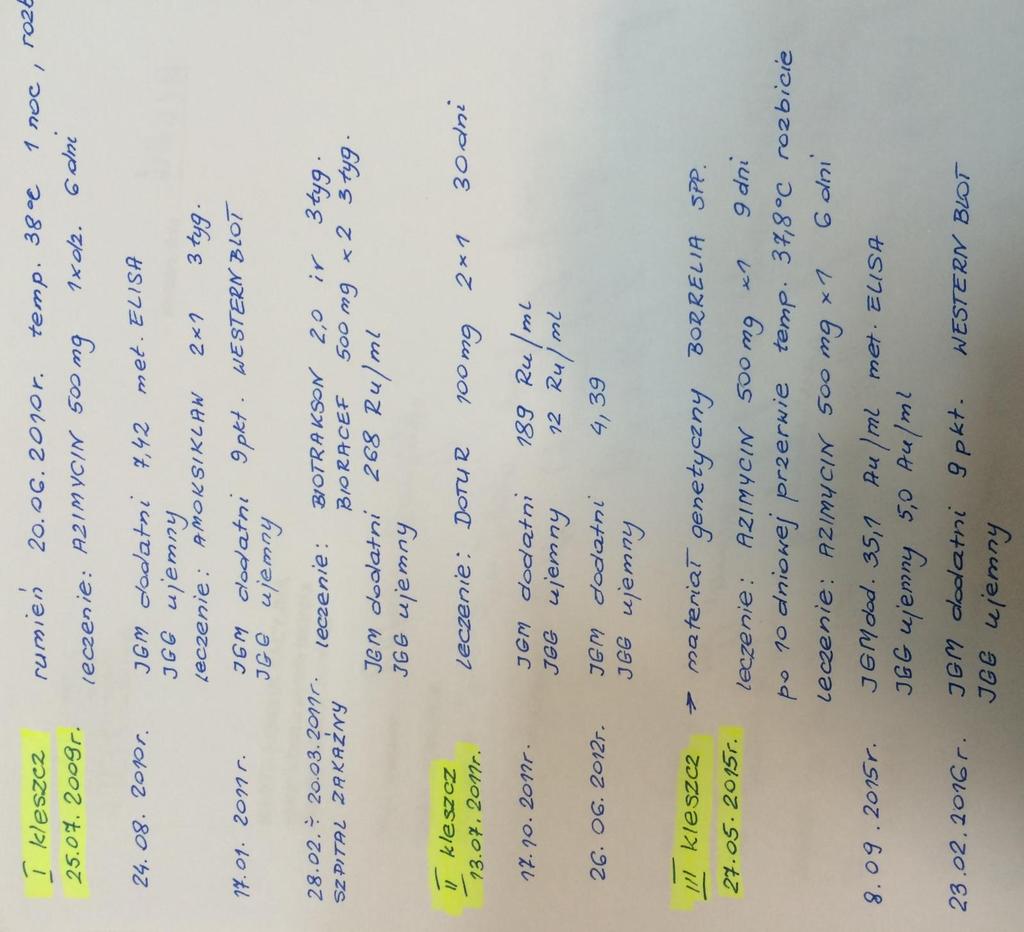 I kleszcz rumień 20.06.2010r. temp. 38°C 1 noc, rozb
25.07.2009r. leczenie: AZIMYCIN 500 mg 1xdz. 6 dni
24.08.2010r. JGM dodatni 7,42 met. ELISA
JGG ujemny
leczenie: AMOKSIKLAW 2x1 3 tyg.
17.01.2011r. JGM dodatni 9 pkt. WESTERN BLOT
JGG ujemny
28.02. ÷ 20.03.2011r. leczenie: BIOTRAKSON 2,0 iv 3 tyg.
SZPITAL ZAKAŹNY BIORACEF 500 mg x 2 3 tyg.
JGM dodatni 268 Ru/ml
JGG ujemny
II kleszcz leczenie: DOTUR 100mg 2x1 30 dni
13.07.2011r.
17.10.2011r. JGM dodatni 189 Ru/ml
JGG ujemny 12 Ru/ml
26.06.2012r. JGM dodatni 4,39
JGG ujemny
III kleszcz → materiał genetyczny BORRELIA SPP.
27.05.2015r. leczenie: AZIMYCIN 500 mg x1 9 dni
po 10 dniowej przerwie temp. 37,8°C rozbicie
leczenie: AZIMYCIN 500 mg x1 6 dni
8.09.2015r. JGM dod. 35,1 Au/ml met. ELISA
JGG ujemny 5,0 Au/ml
23.02.2016r. JGM dodatni 9 pkt. WESTERN BLOT
JGG ujemny